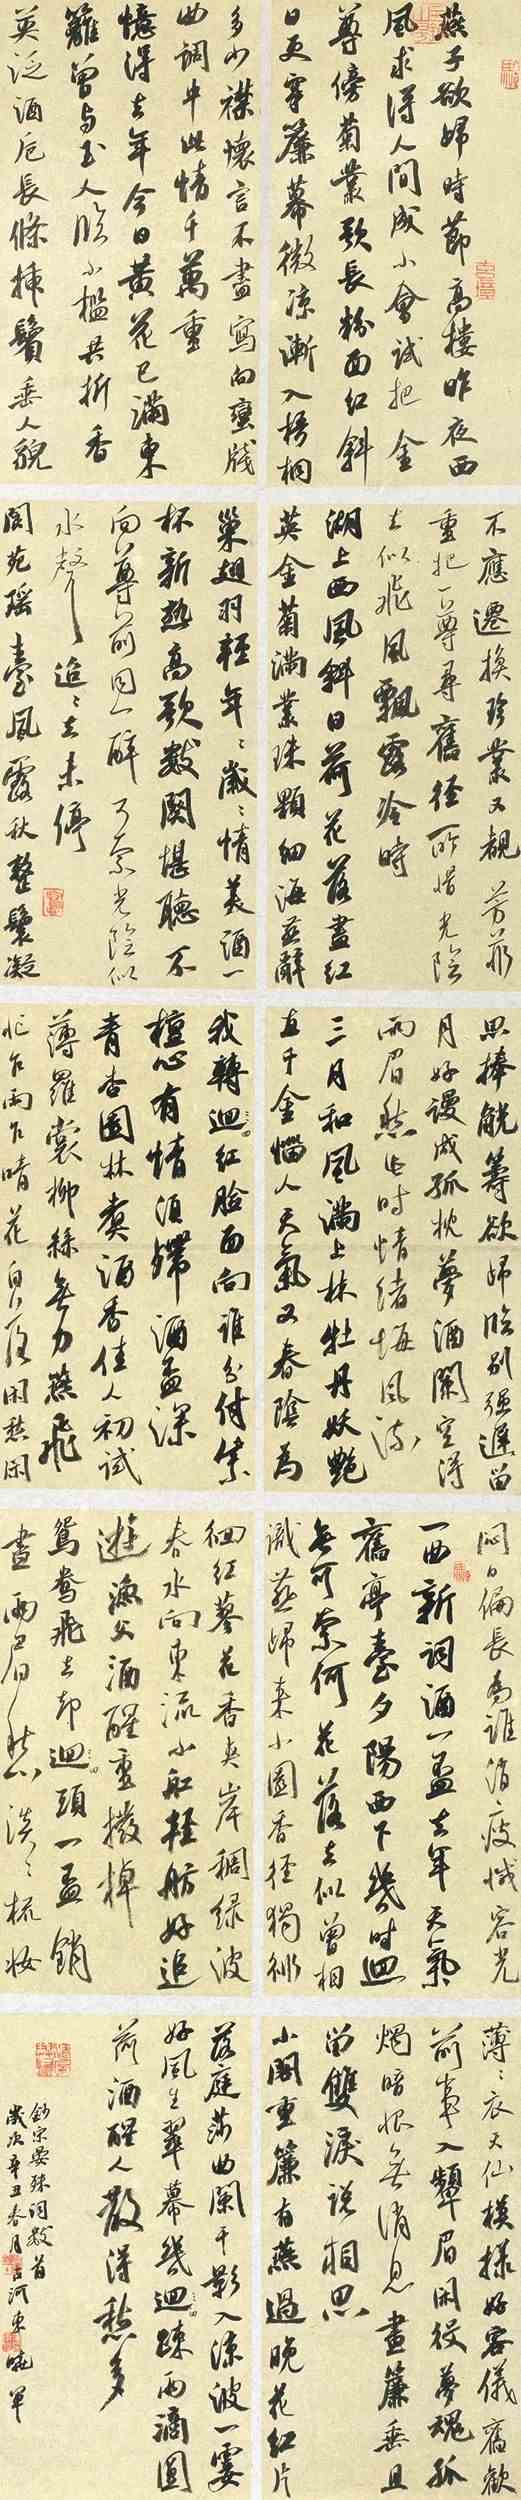 燕子欲歸時節高樓昨夜西
風求得人間成小會試把金
尊傍菊叢歌長粉面紅斜
日更穿簾幕微涼漸入梧桐
多少襟懷言不盡寫向蠻牋
曲調中此情千萬重
憶得去年今日黃花已滿東
籬曾與玉人臨小檻共折香
英泛酒卮長條插鬢垂人貌
不應遷換珍叢又覩芳菲
重把一尊尋舊徑所惜光陰
去似飛風飄露冷時
湖上西風斜日荷花落盡紅
英金菊滿叢珠顆細海燕辭
巢翅羽輕年〻歲〻情美酒一
杯新熟高歌數闋堪聽不
向尊前同一醉可奈光陰似
水聲迢〻去未停
閬苑瑤臺風露秋整鬟凝
思捧觥籌欲歸臨別強遲留
月好謾成孤枕夢酒闌空得
兩眉愁此時情緒悔風流
三月和風滿上林牡丹妖艷
直千金惱人天氣又春陰為
我轉迴紅臉面向誰分付紫
檀心有情須殢酒盃深
青杏園林煮酒香佳人初試
薄羅裳柳絲無力燕飛
忙乍雨乍晴花自落閒愁閒
悶日偏長為誰消瘦減容光
一曲新詞酒一盃去年天氣
舊亭臺夕陽西下幾時迴
無可奈何花落去似曾相
識燕歸來小園香徑獨徘
徊紅蓼花香夾岸稠綠波
春水向東流小舡輕舫好追
遊漁父酒醒重撥棹
鴛鴦飛去却迴頭一盃銷
盡兩眉愁淡〻梳妝
薄〻衣天仙模樣好容儀舊歡
前事入顰眉閒役夢魂孤
燭暗恨無消息畫簾垂且
留雙淚說相思
小閣重簾有燕過晚花紅片
落庭莎曲闌干影入涼波一霎
好風生翠幕幾迴疎雨滴圓
荷酒醒人散得愁多
鈔宋晏殊詞數首
歲次辛丑春月古河東曉軍